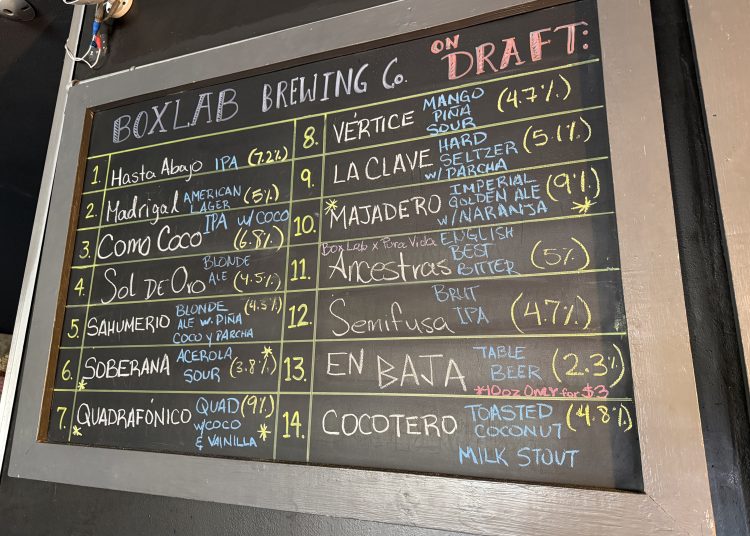 BOXLAB BREWING Co. ON DRAFT:
1. Hasta Abajo IPA (7.2%)
2. Madrigal AMERICAN LAGER (5%)
3. Como Coco IPA w/ COCO (6.8%)
4. Sol De Oro BLONDE ALE (4.5%)
5. SAHUMERIO BLONDE ALE w. PIÑA COCO y PARCHA (4.5%)
6. SOBERANA ACEROLA SOUR (3.8%)
7. QUADRAFÓNICO QUAD w/COCO & VAINILLA (9%)
8. VÉRTICE MANGO PIÑA SOUR (4.7%)
9. LA CLAVE HARD SELTZER w/ PARCHA (5.1%)
10. MAJADERO IMPERIAL GOLDEN ALE w/ NARANJA (9%)
Box Lab x Pura Vida
11. Ancestras ENGLISH BEST BITTER (5%)
12. Semifusa BRUT IPA (4.7%)
13. EN BAJA TABLE BEER (2.3%)
*10oz ONLY for $3
14. COCOTERO TOASTED COCONUT MILK STOUT (4.8%)